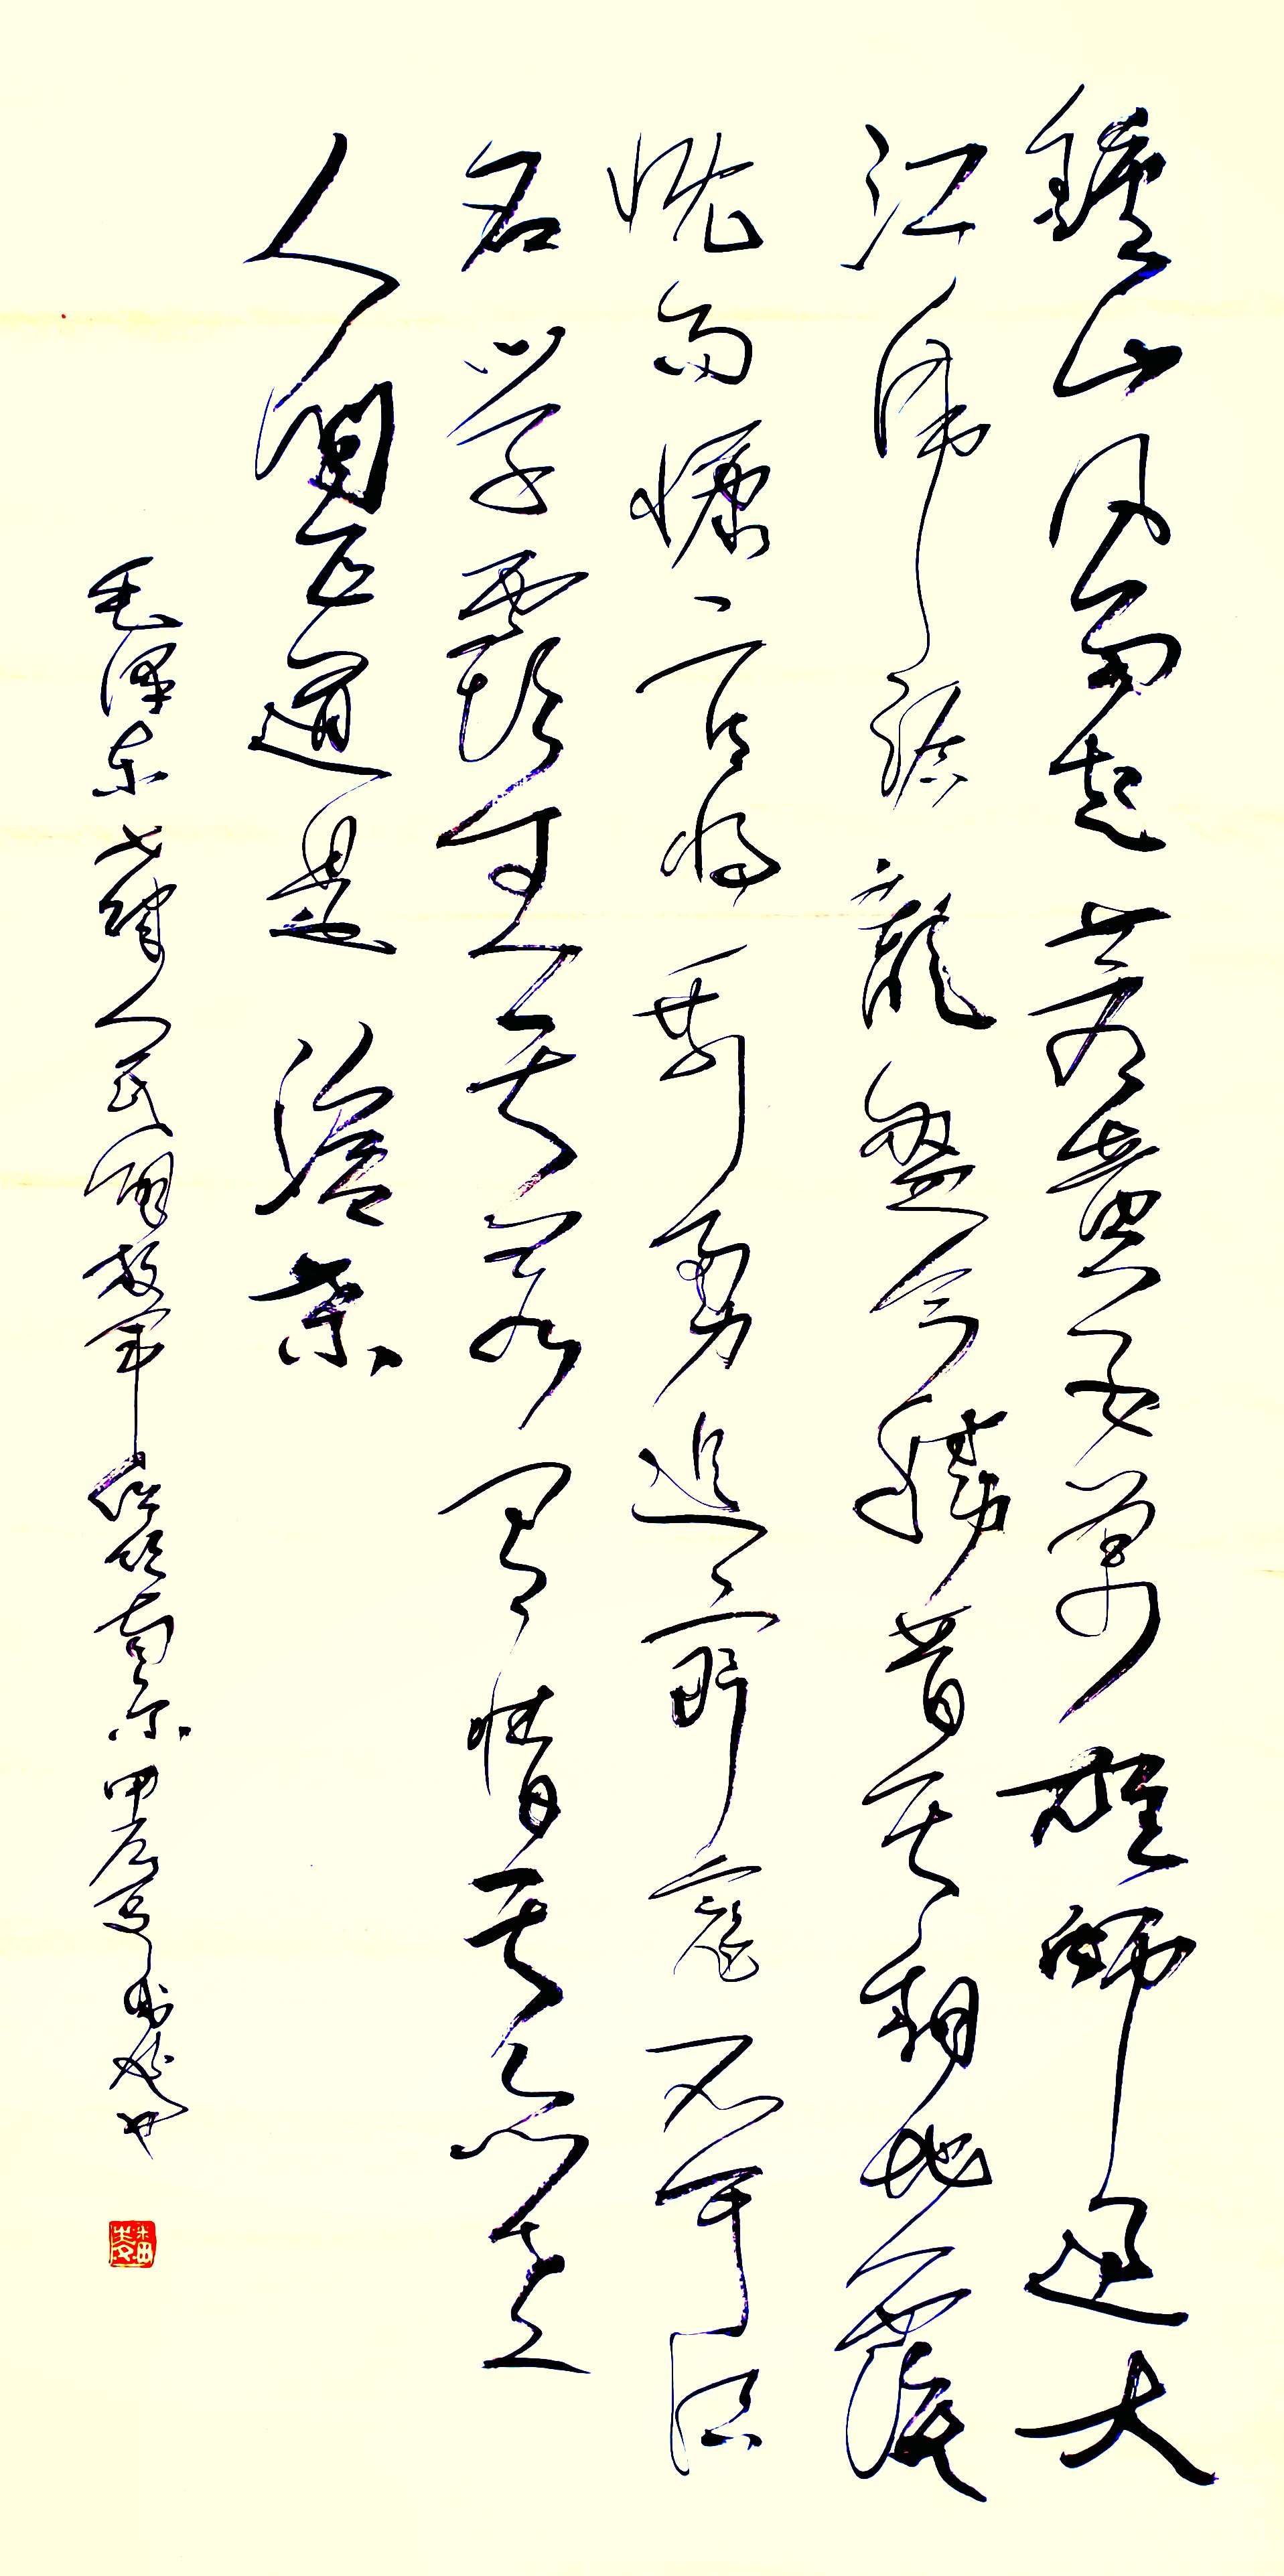 鍾山风雨起蒼黄百萬雄師過大
江虎踞龍盤今勝昔天翻地覆
慨而慷宜将剩勇追窮寇不可沽
名学霸王天若有情天亦老
人間正道是滄桑
毛泽东七律人民解放军佔领南京甲辰夏